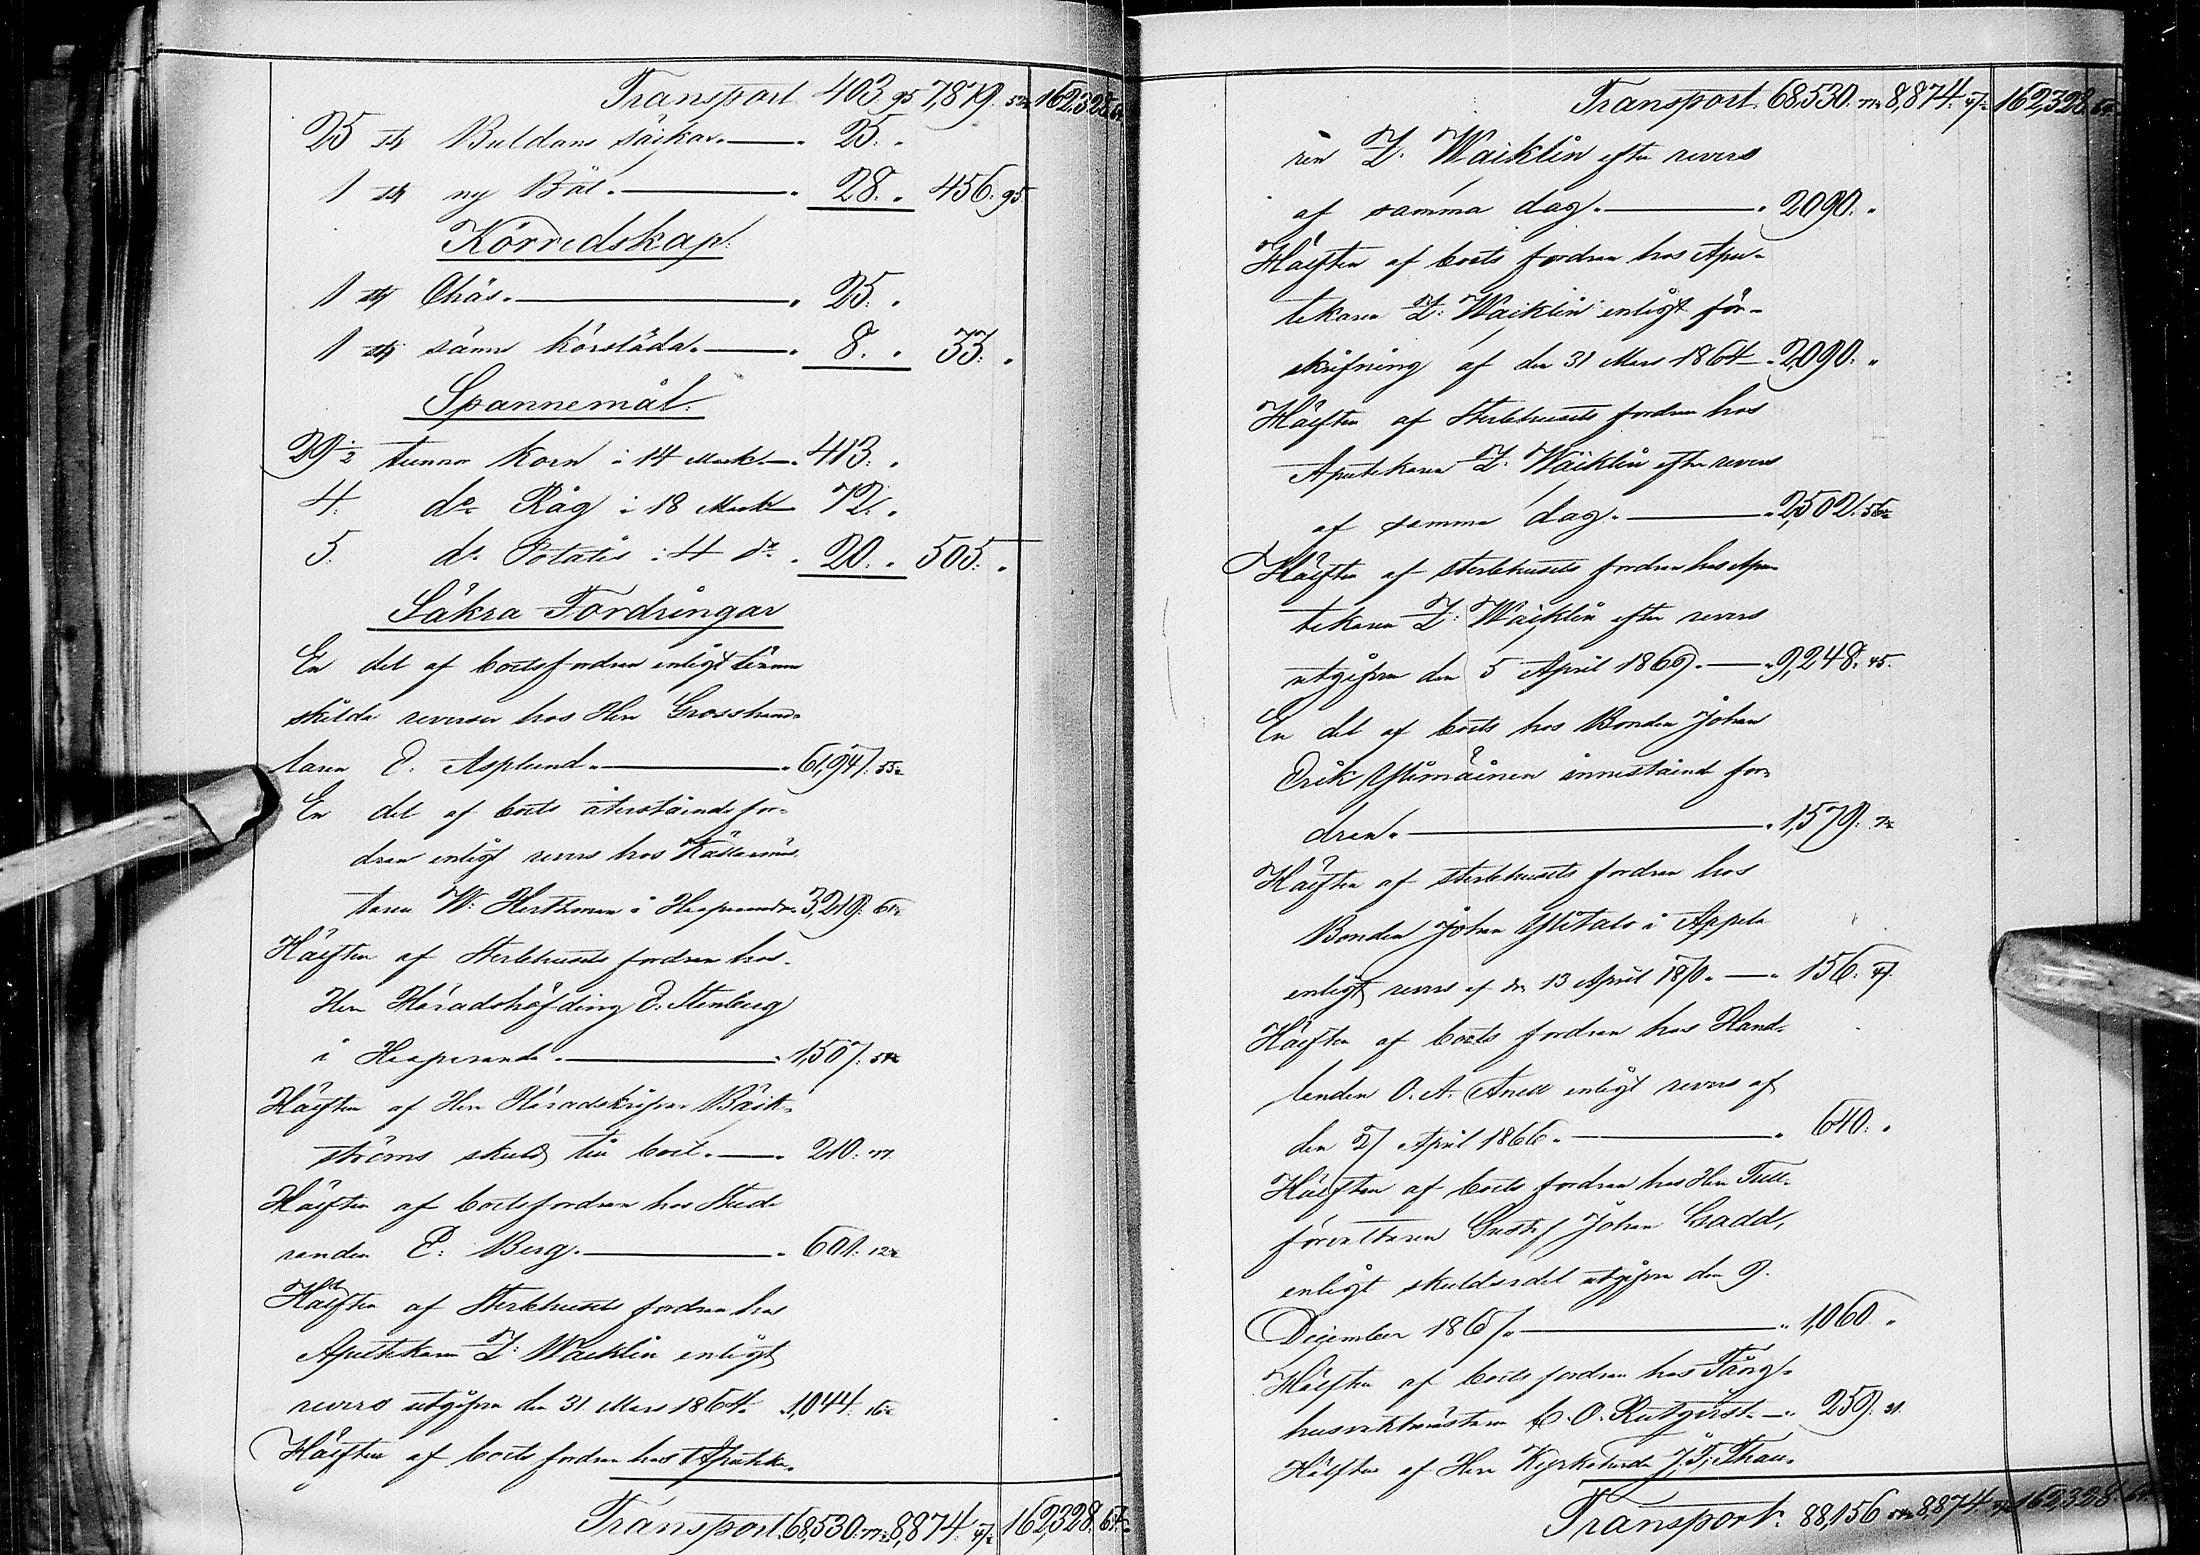 Transport. 403. 95 7,879. 52 162,328. 64
25 st Buldans säckar. — 25. "
1 st ny Båt. — 28. " 456. 95
Körredskap.
1 st Chäs. — 25. "
1 st sämre körsläda. — 8. " 33. "
Spannemål.
29 1/2 tunnor Korn á 14 Mark. — 413. "
4. do Råg á 18 Mark 72. "
5. do Potatis á 4 do 20. " 505. "
Säkra Fordringar
En del af boets fordran enligt särm
skilda reverser hos Herr Grosshand-
laren E. Asplund. — 61,947. 55
En del af boets återstående for-
dran enligt revers hos Källarmäs
taren W. Herthman i Haparanda. 3,219. 61
Hälften af Sterbhusets fordran hos
Herr Häradshöfding E. Stenberg
i Haparanda. — 1,507. 51
Hälften af Herr Häradskrifvar Bäck-
ströms skuld till boet. — 210. 77
Hälften af boets fordran hos Stude
randen E. Berg. — 601. 12
Hälften af Sterbhusets fordran hos
Apothekaren Z. Waeklin enligt
revers utgifven den 31 Mars 1864. 1,044. 16
Hälften af boets fordran hos Apotheka-
Transport. 68,530. 77 8,874. 47 162,328. 64
Transport. 68,530. 77 8,874. 47 162,328. 64
ren Z. Waeklin efter revers
af samma dag. — 2090. "
Hälften af boets fordran hos Apo-
tekaren Z. Waeklin enligt för-
skrifning af den 31 Mars 1864 — 2,090. "
Hälften af Sterbhusets fordran hos
Apotekaren Z. Waeklin efter revers
af samma dag. — 2,502. 56
Hälften af sterbhusets fordran hos Apo
tekaren Z. Waeklin efter revers
utgifven den 5 April 1869. — 9,248. 45.
En del af boets hos Bonden Johan
Erik Ylimäinen innestående for-
dran. — 1,579. 7
Hälften af sterbhusets fordran hos
Bonden Johan Ylitalo i Appela
enligt revers af den 13 April 1870. — 156. 47.
Hälften af boets fordran hos Hand-
landen O. A. Anell enligt revers af
den 27 April 1866. — 640. "
Hälften af boets fordran hos Herr Tull-
förvaltaren Gustaf Johan Gadd,
enligt skuldsedel utgifven den 9.
December 1867. — 1,060 "
Hälften af boets fordran hos Fång-
husvaktmästaren C. O. Rutqvist. — 259. 31
Hälften af Herr Kyrkoherde J. F. Thau-
Transport. 88,156 8,874. 47 162,328. 64